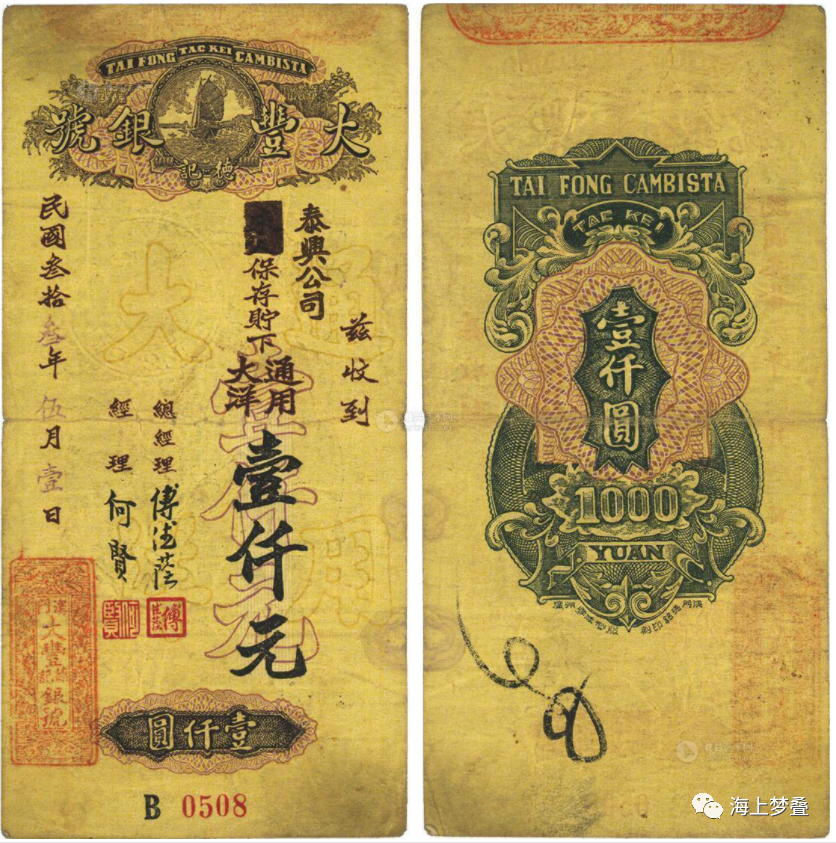 TAI FONG TAC KEI CAMBISTA
大豐銀號
德記
茲收到
泰興公司
保存貯下
通用
大洋
壹仟元
總經理 傅德蔭
經理 何賢
民國叁拾叁年伍月壹日
澳門
大豐
銀號
壹仟圓
B 0508
TAI FONG CAMBISTA
TAC KEI
壹仟圓
1000
YUAN
海上梦叠